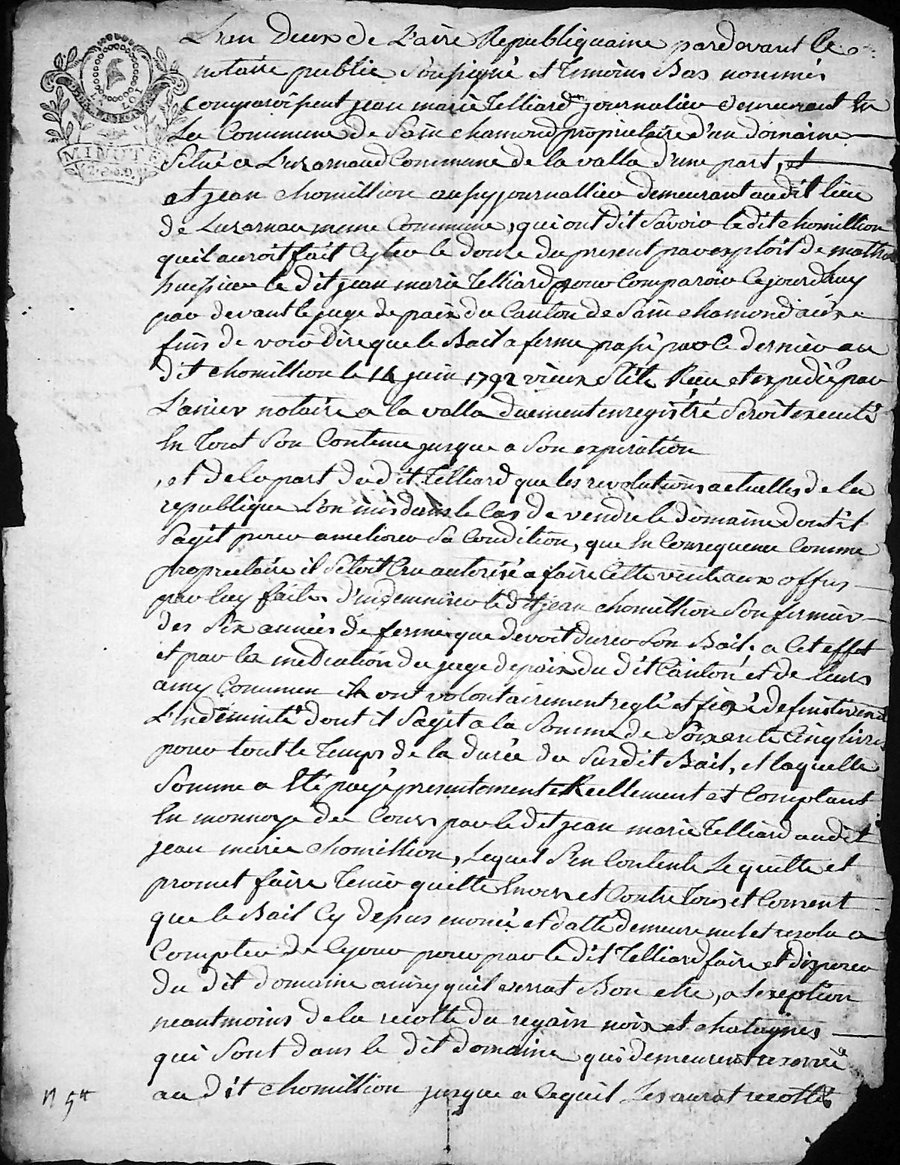 L'an Deux de L'aire Republiquaine pardevant le
notaire public Sousigné et temoins Bas nommés
comparoissent jean marie Telliard journalier demeurant En
La Commune de Sain chamond propriétaire d'un domaine
Situé a Luzarnaud Commune de la valla d'une part, et
et jean chomillion aussy journallier demeurant audit lieu
de Luzarnau meme Commune, qui ont dit Savoir le dit chomillion
quil auroit fait Cyter le douze du present par exploit de
le dit jean marie Telliard pour Comparoir Cejourdhuy
par devant le juge de paix du Canton de Sain chamond aux
fins de voir dire que le Bail a ferme passé par le dernier au
dit chomillion le 14 juin 1792 vieux Stile Reçu et expedié par
L'anier notaire a la valla duement enregistré Seroit executé
En Tout Son Contenu jusque a Son expiration
, et de la part du dit Telliard que les revolutions actuelles de la
republique L'on mis dans le Cas de vendre le domaine dont il
Sagit pour ameliorer Sa Condition, que En Consequence Comme
propriétaire il Setoit Cru autorisé a faire Cette vente aux offres
par luy faites d'indemniser le dit jean chomillion Son fermier
des Six années de ferme que devoit durer Son Bail; a Cet effet
et par la mediation du juge de paix du dit Canton, et de leurs
amy Commun ils ont volontairement reglé et fixé definitivement
L'indemnité dont il Sagit a la Somme de Soixante Cinq livres
pour tout le Temps de la durée du Susdit Bail, et laquelle
Somme a Eté payé presentement et Reellement et Comptant
En monnoye de Cours par le dit jean marie Telliard audit
jean marie chomillion, Lequel S'en Contente Le quitte et
promet faire Tenir quitte Envers et Contre Tous et Consent
que le Bail Cy dessus enoncé et datté demeure nul et resolu a
Compter de Cejour pour par le dit Telliard faire et disposer
du dit domaine ainsy quil verrat Bon etre, a l'exeption
neantmoins de la recolte du regain noix et chatagnes
qui Sont dans le dit domaine qui demeurent reservée
au dit chomillion jusque a Cequil Les aurat recolté
MINUTE